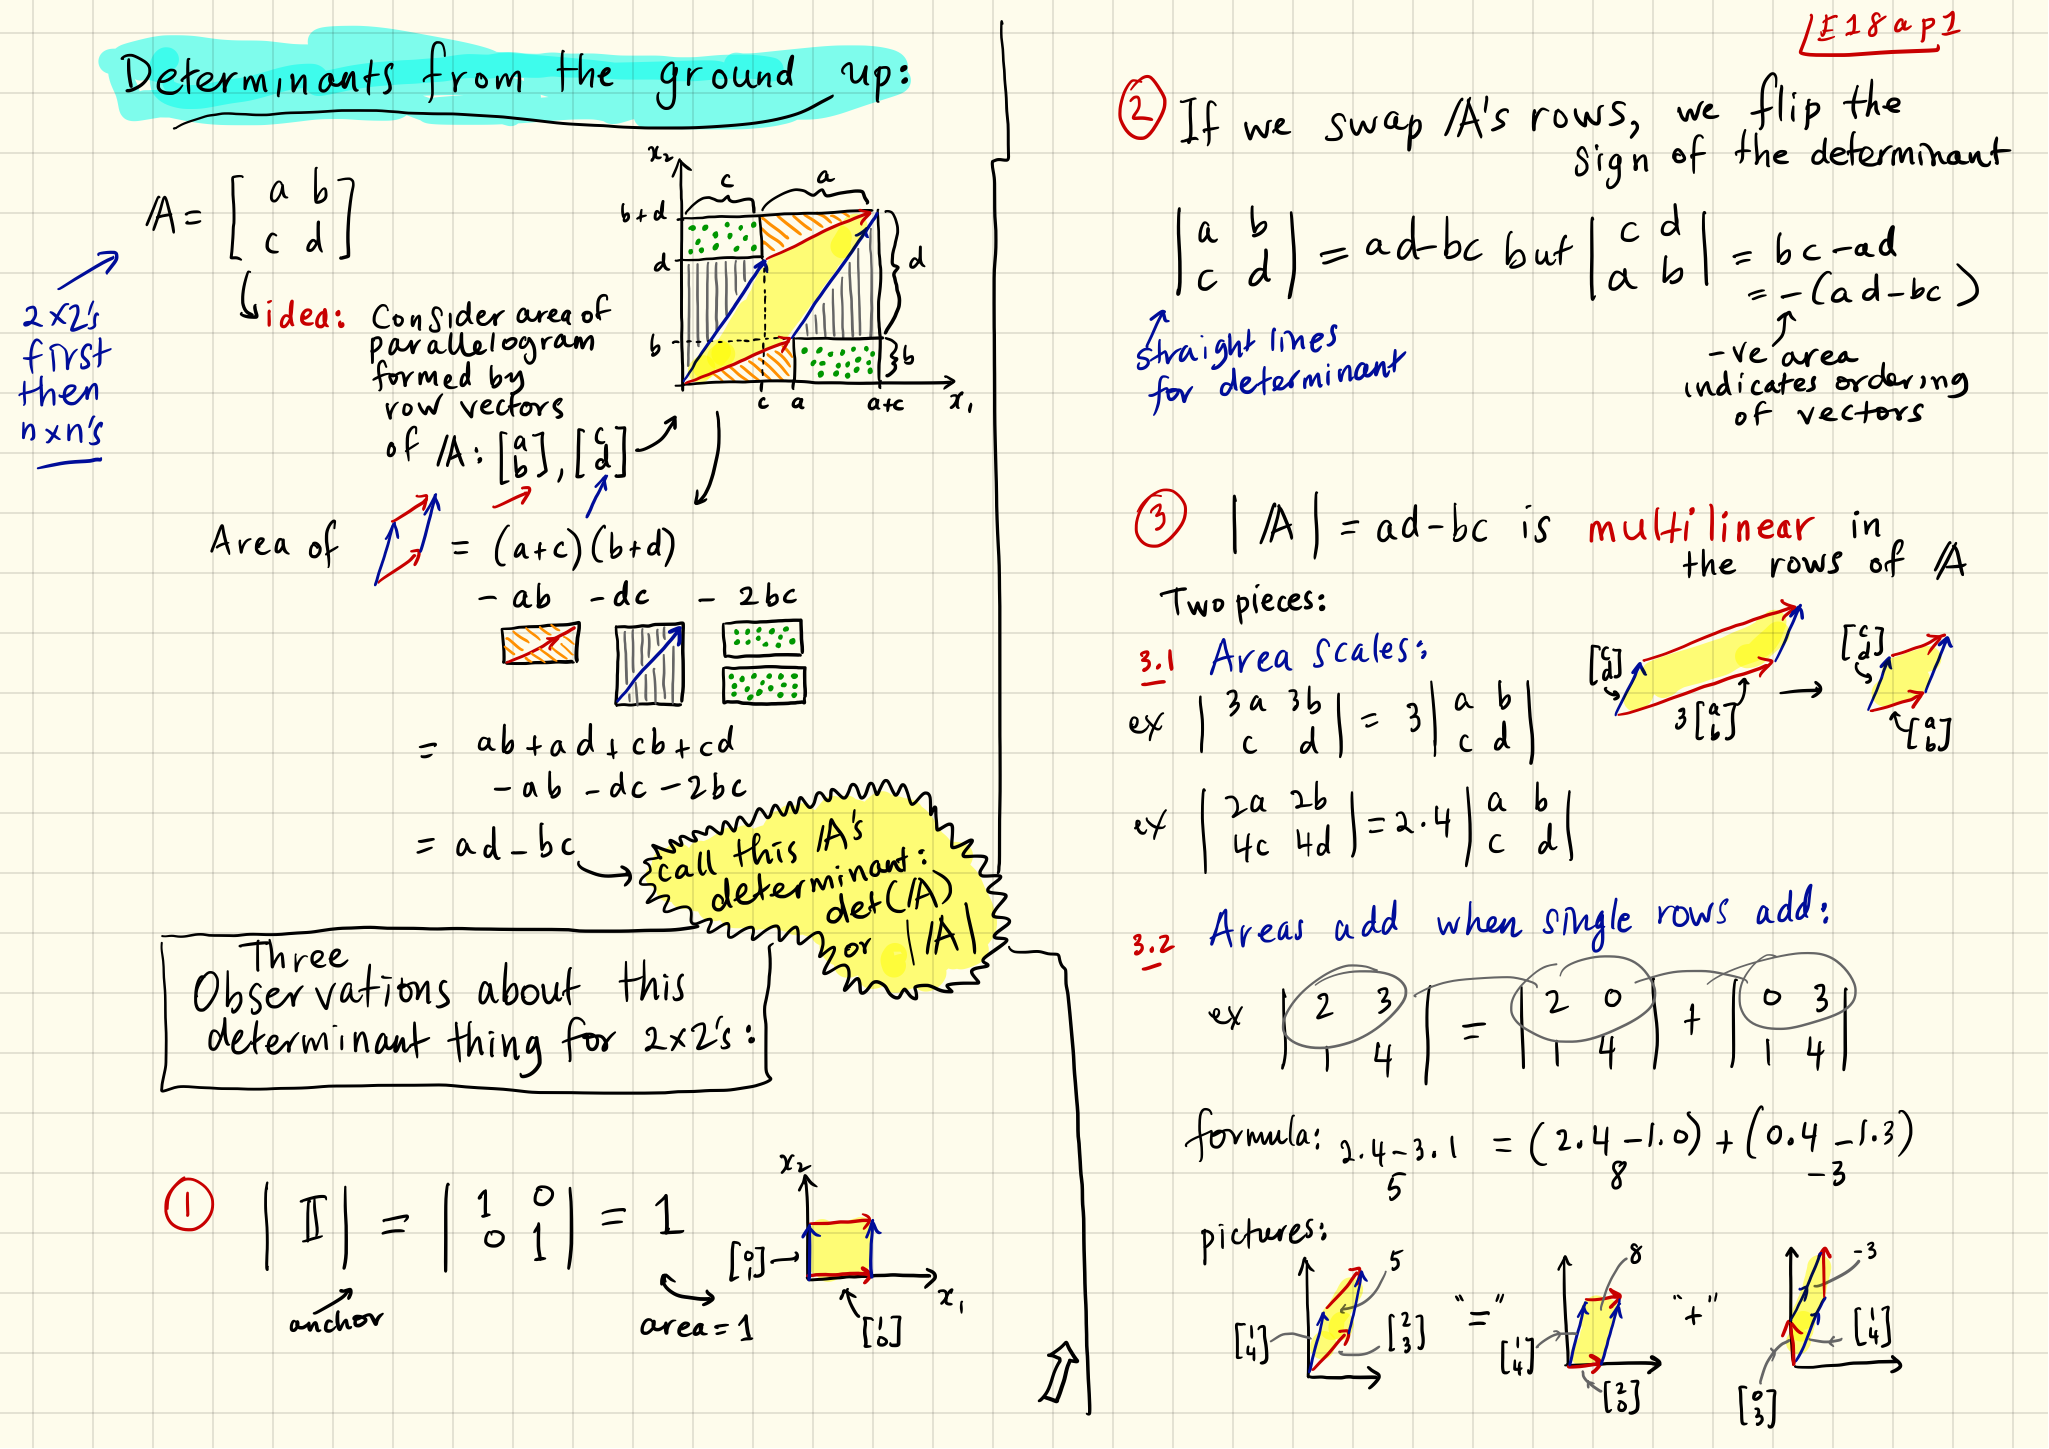 Determinants from the ground up:
𝔸 = [a b
c d]
2x2's
first
then
nxn's
idea: Consider area of
parallelogram
formed by
row vectors
of 𝔸: [a b], [c d]
x₂
c
a
b+d
d
d
b
b
c a a+c x₁
Area of = (a+c)(b+d)
- ab - dc - 2bc
= ab + ad + cb + cd
- ab - dc - 2bc
= ad - bc
call this 𝔸's
determinant:
det(𝔸)
or |𝔸|
Three
Observations about this
determinant thing for 2x2's:
① |𝕀| = |1 0
0 1| = 1
anchor
area = 1
x₂
[0 1]
[1 0]
x₁
E18ap1
② If we swap 𝔸's rows, we flip the
sign of the determinant
|a b
c d| = ad-bc but |c d
a b| = bc-ad
= -(ad-bc)
straight lines
for determinant
-ve area
indicates ordering
of vectors
③ |𝔸| = ad-bc is multilinear in
the rows of 𝔸
Two pieces:
3.1 Area scales:
ex |3a 3b
c d| = 3 |a b
c d|
[c d]
3[a b]
[c d]
[a b]
ex |2a 2b
4c 4d| = 2.4 |a b
c d|
3.2 Areas add when single rows add:
ex |2 3
1 4| = |2 0
1 4| + |0 3
1 4|
formula: 2.4-3.1 = (2.4-1.0) + (0.4-1.3)
5 8 -3
pictures:
5
[1 4]
[2 3]
"="
8
[1 4]
[2 0]
"+"
-3
[1 4]
[0 3]